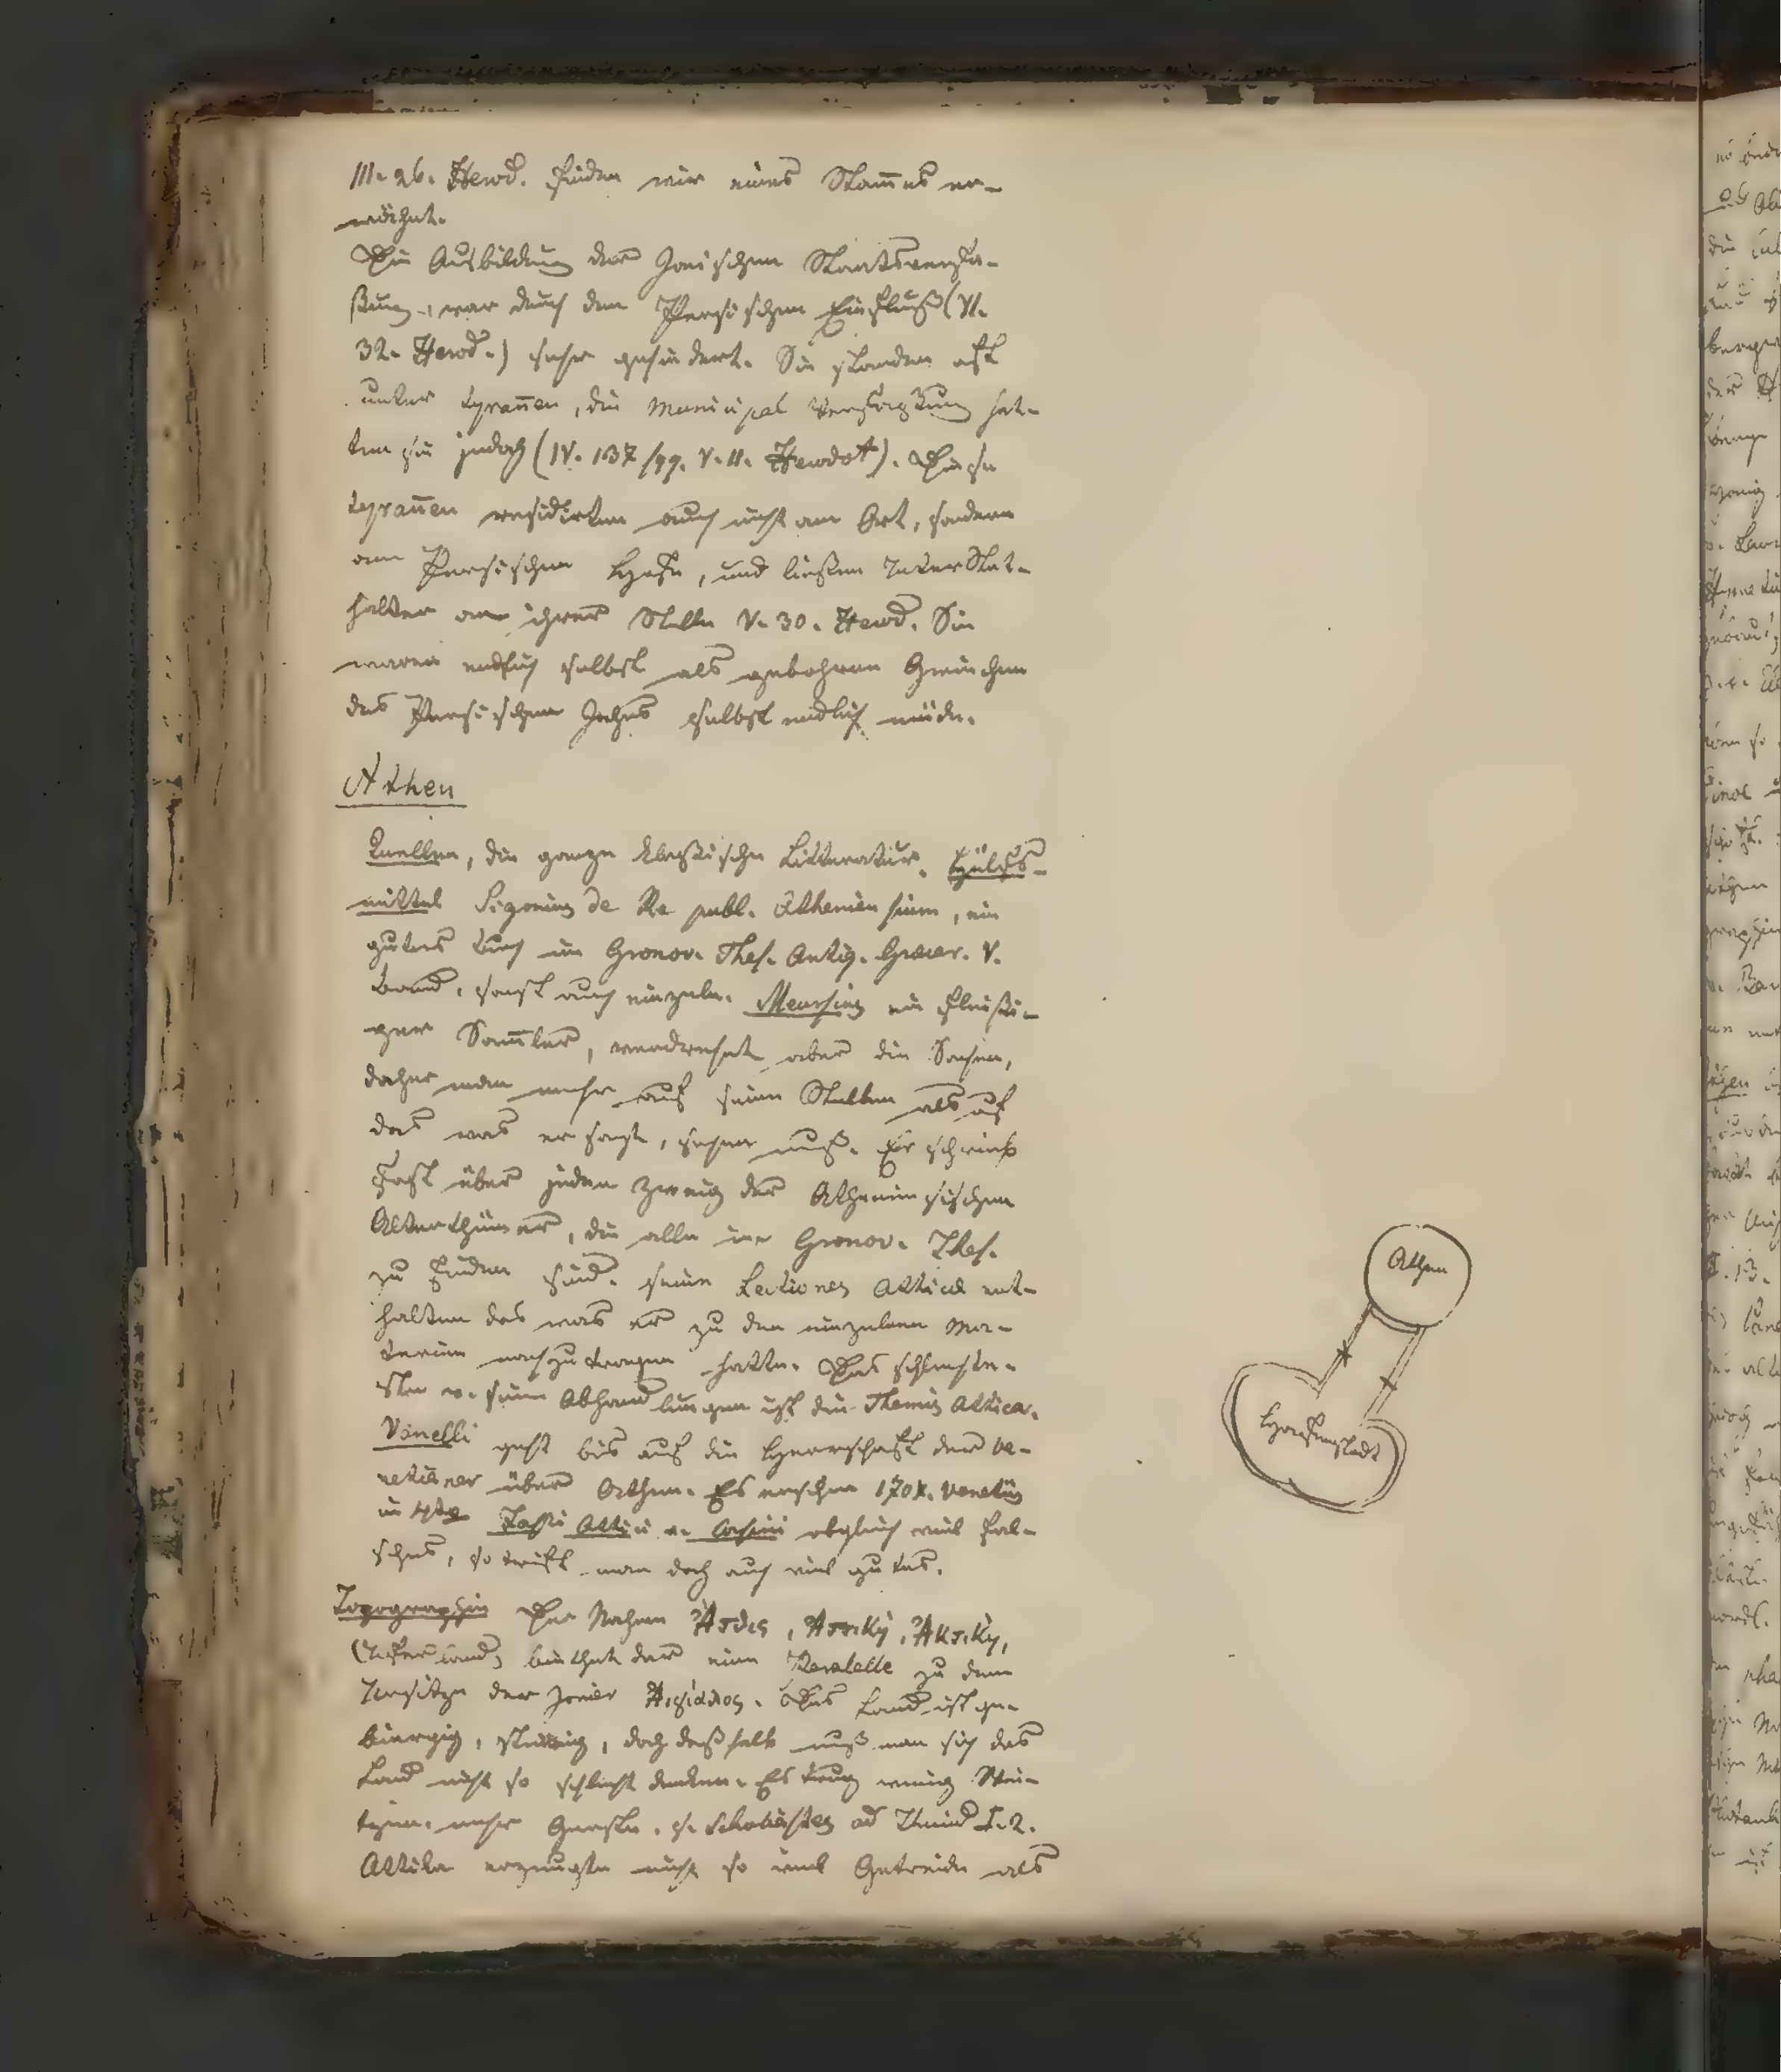 III. 26. Herod. finden wir eines Stam̅es er-
wähnt.
Die Ausbildung der Jonischen Staatsverfa-
ßung, war durch den Persischen Einfluß (VI.
32. Herod.) sehr gehindert. Sie standen oft
unter Tyran̅en, die Municipal Verfaßung hat-
ten sie jedoch (IV. 137 V. 11. Herodot). Diese
Tyran̅en residirten auch nicht am Ort, sondern
am Persischen Hofe, und ließen UnterStat-
halter an ihrer Stelle V. 30. Herod. Sie
waren endlich selbst als gebohrne Griechen
des Persischen Jochs selbst endlich müde.
Athen
Quellen, die ganze klaßische Litteratur. Hülfs-
mittel Sigonius de Re publ. Atheniensium, ein
gutes Buch im Gronov. Thes. Antiq. Graecar. V.
Band, sonst auch einzeln. Meursius ein fleißi-
ger Sam̅ler, verdrehet aber die Sachen,
daher man mehr auf seine Stellen als auf
das was er sagt, sehen muß. Er schrieb
fast über jeden Zweig der Atheniensischen
Alterthümer, die alle im Gronov. Thes.
zu finden sind. seine Lectiones Atticae ent-
halten das was er zu den einzelnen Ma-
terien nachzutragen hatte. Das schlechte-
ste v. seinen Abhandlungen ist die Themis Attica.
Vanelli geht bis auf die Herrschaft der Ve-
netianer über Athen. Es erschien Venetiis
in 4to Fasti Attici v. Corsini obgleich viel fal-
sches, so trifft man doch auch viel gutes.
Topographie Der Nahme Ἀτθις, Ἀττικη, Ἀκτικη,
(Uferland) biethet der eine Paralelle zu dem
Ursitze der Jonier Αιγιαλος. Das Land ist ge-
bürgig, steinig, doch deßhalb muß man sich das
Land nicht so schlecht denken. Es trug wenig Wei-
tzen, mehr Gerste. s. Scholiastes ad Thucid I. 2.
Attika erzeugte nicht so viel Getreide als
Athen
Hafenstadt